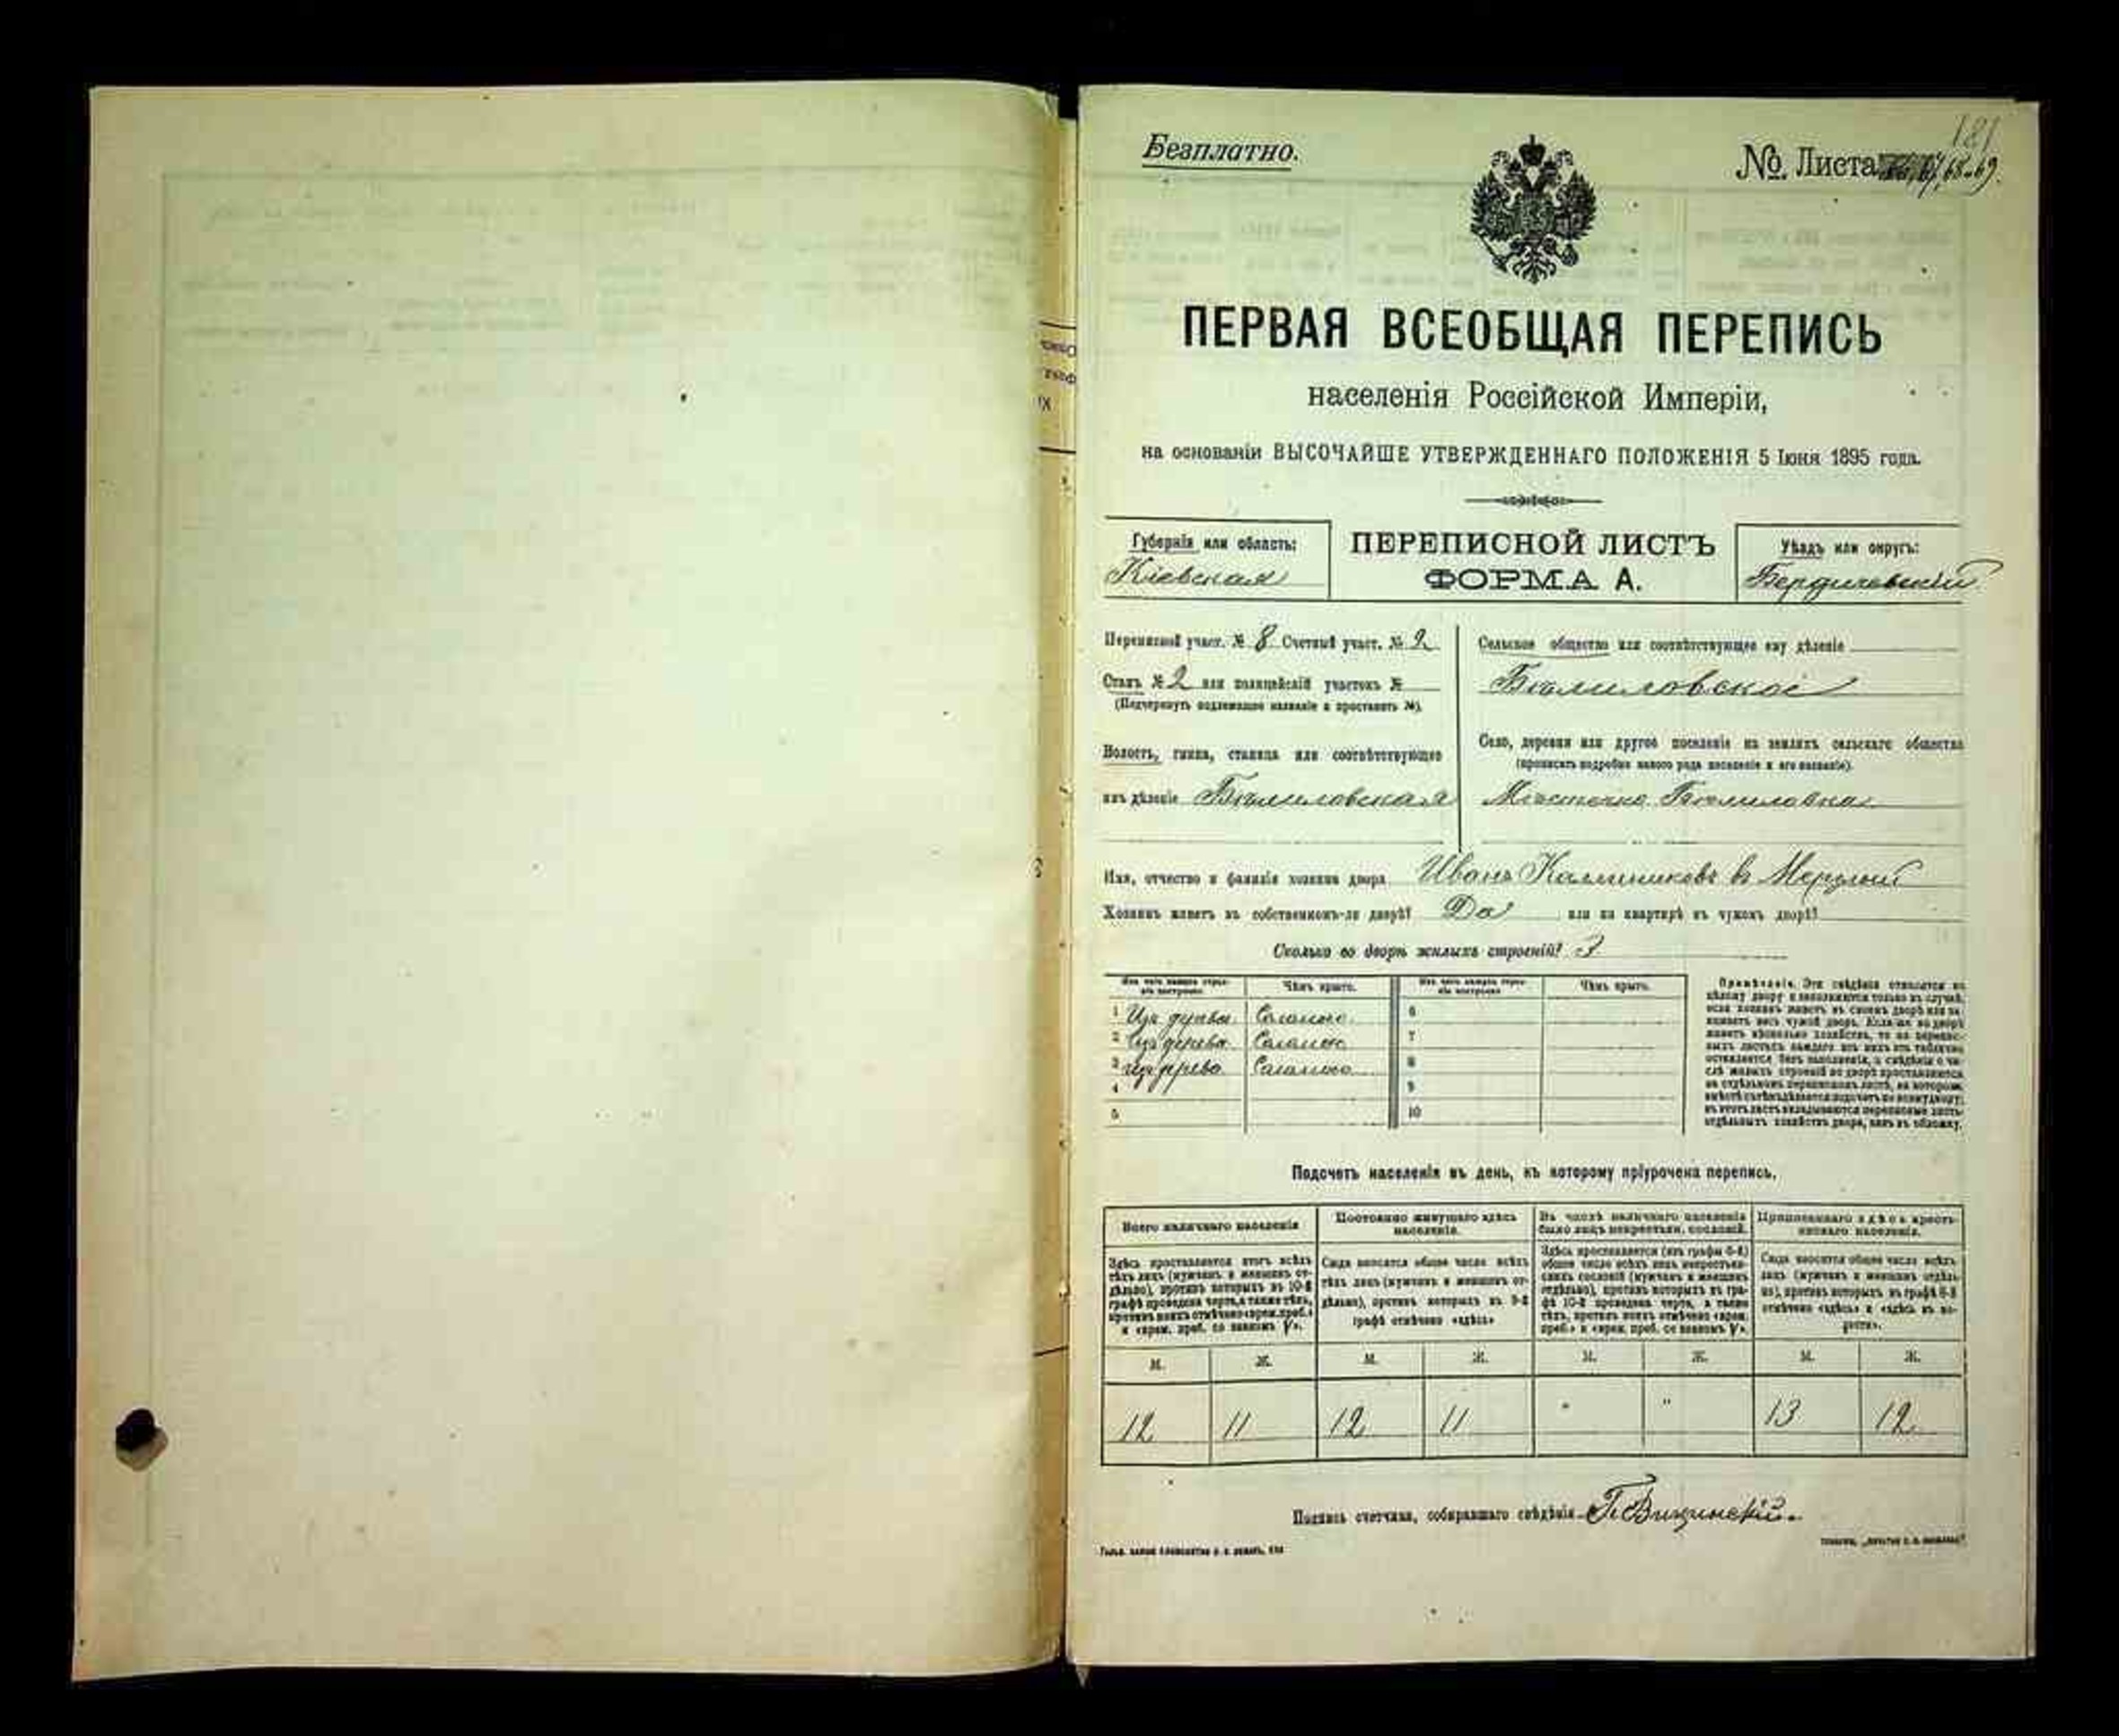 181
Безплатно.
№ Листа 67, 68-69.
ПЕРВАЯ ВСЕОБЩАЯ ПЕРЕПИСЬ
населенія Россійской Имперіи,
на основаніи ВЫСОЧАЙШЕ УТВЕРЖДЕННАГО ПОЛОЖЕНІЯ 5 Іюня 1895 года.
Губернія или область:
Кіевская
ПЕРЕПИСНОЙ ЛИСТЪ
ФОРМА А.
Уѣздъ или округъ:
Бердичевскій
Переписной участ. № 8 Счетный участ. № 2
Станъ № 2 или полицейскій участокъ №
(Подчеркнуть подлежащее названіе и проставить №).
Волость, гмина, станица или соотвѣтствующее
имъ дѣленіе Бѣлиловская
Сельское общество или соотвѣтствующее ему дѣленіе
Бѣлиловское
Село, деревня или другое поселеніе на земляхъ сельскаго общества
(прописать подробно какого рода поселеніе и его названіе).
Мѣстечко Бѣлиловка
Имя, отчество и фамилія хозяина двора Иванъ
Хозяинъ живетъ въ собственномъ-ли дворѣ? Да или на квартирѣ въ чужомъ дворѣ?
Сколько во дворѣ жилыхъ строеній? 3
Изъ чего каждое строеніе построено.
Чѣмъ крыто.
Изъ чего каждое строеніе построено.
Чѣмъ крыто.
1 Изъ дерева Соломою 6
2 Изъ дерева Соломою 7
3 изъ дерева Соломою 8
4 9
5 10
Примѣчаніе. Эти свѣдѣнія относятся ко
цѣлому двору и заполняются только въ случаѣ,
если хозяинъ живетъ въ своемъ дворѣ или занимаетъ весь чужой дворъ. Если же во дворѣ
Подсчетъ населенія въ день, къ которому пріурочена перепись.
Всего наличнаго населенія
Постоянно живущаго здѣсь населенія.
Въ числѣ наличнаго населенія было лицъ некрестьян. сословій.
Приписаннаго здѣсь крестьянскаго населенія.
Здѣсь проставляется итогъ всѣхъ
тѣхъ лицъ (мужчинъ и женщинъ отдѣльно), противъ которыхъ въ 10-й
графѣ проведена черта, а также тѣхъ,
противъ коихъ отмѣчено «врем. преб.»
и «врем. преб. со знакомъ V».
Сюда вносится общее число всѣхъ
тѣхъ лицъ (мужчинъ и женщинъ отдѣльно), противъ которыхъ въ 9-й
графѣ отмѣчено «здѣсь»
Здѣсь проставляется (изъ графы 6-й)
общее число всѣхъ лицъ некрестьянскихъ сословій (мужчинъ и женщинъ
отдѣльно), противъ которыхъ въ графѣ 10-й проведена черта, а также
тѣхъ, противъ коихъ отмѣчено «врем.
преб.» и «врем. преб. со знакомъ V».
Сюда вносится общее число всѣхъ
лицъ (мужчинъ и женщинъ отдѣльно), противъ которыхъ въ графѣ 8-й
отмѣчено «здѣсь» и «здѣсь въ волости».
М. Ж. М. Ж. М. Ж. М. Ж.
12 11 12 11 " " 13 12
Подпись счетчика, собиравшаго свѣдѣнія